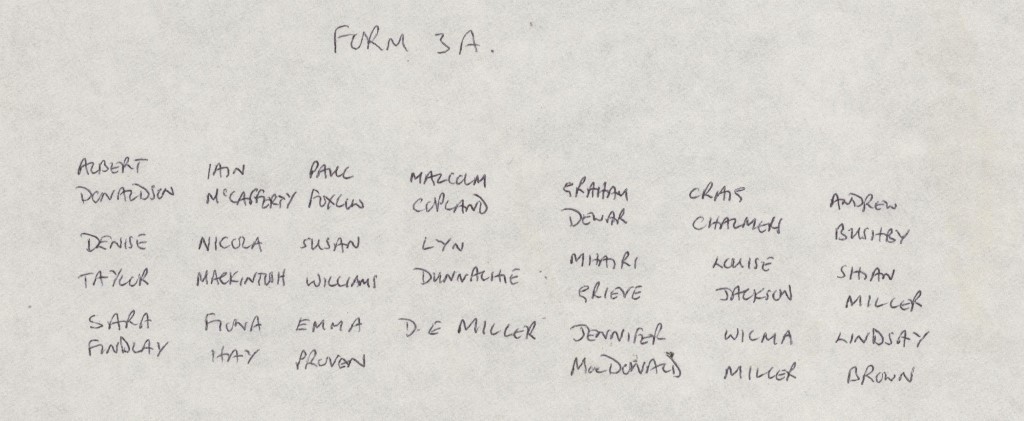 FORM 3A.
ALBERT IAIN PAUL MALCOLM GRAHAM CRAIG ANDREW
DONALDSON McCAFFERTY FOXLOW COPLAND DEWAR CHALMERS BUSHBY
DENISE NICOLA SUSAN LYN MHAIRI LOUISE SHIAN
TAYLOR MACKINTOSH WILLIAMS DUNNACHIE GRIEVE JACKSON MILLER
SARA FIONA EMMA D.E MILLER JENNIFER WILMA LINDSAY
FINDLAY HAY PROVEN MacDONALD MILLER BROWN